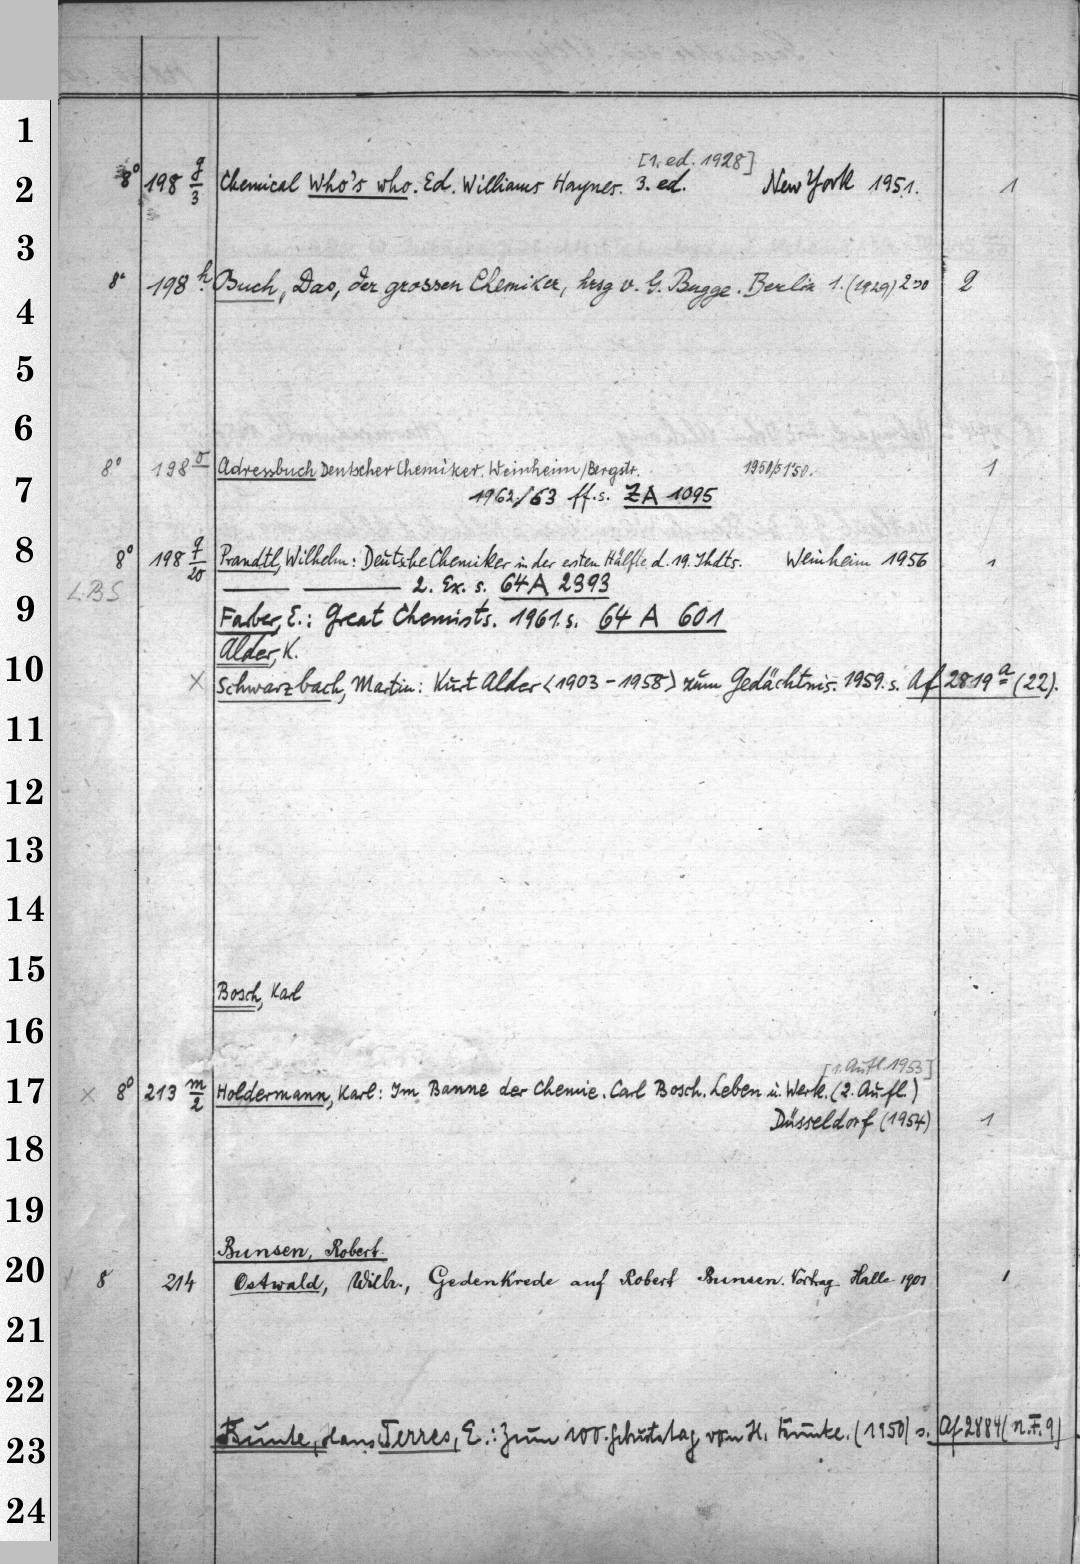 1
[1. ed. 1928]
2 8° 198 g/3 Chemical Who's who. Ed. Williams Haynes. 3. ed. New York 1951. 1
3
8° 198 h Buch, Das, der grossen Chemiker, hrsg v. G. Bugge. Berlin 1. (1929) 2
4
5
6
8° 198 Adressbuch Deutscher Chemiker. Weinheim/Bergstr. 1950/51'50. 1
7 1962/63 ff. s. ZA 1095
8 8° 198 q/20 Prandtl, Wilhelm: Deutsche Chemiker in der ersten Hälfte d. 19. Jhdts. Weinheim 1956 1
LBS — — 2. Ex. s. 64 A 2393
9 Farber, E.: Great Chemists. 1961. s. 64 A 601
Alder, K.
10 x Schwarzbach, Martin: Kurt Alder <1903-1958> zum Gedächtnis. 1959. s. Af 2819 a (22).
11
12
13
14
15
Bosch, Karl
16
[1. Aufl. 1953]
17 x 8° 213 m/2 Holdermann, Karl: Im Banne der Chemie. Carl Bosch. Leben u. Werk. (2. Aufl.)
Düsseldorf (1954) 1
18
19
Bunsen, Robert.
20 8 214 Ostwald, Wilh., Gedenkrede auf Robert Bunsen. Vortrag Halle 1901 1
21
22
23 Bunte, Hans Terres, E.: Zum 100. Geburtstag von H. Bunte. (1950) s. Af 2884 (n.F. 9)
24